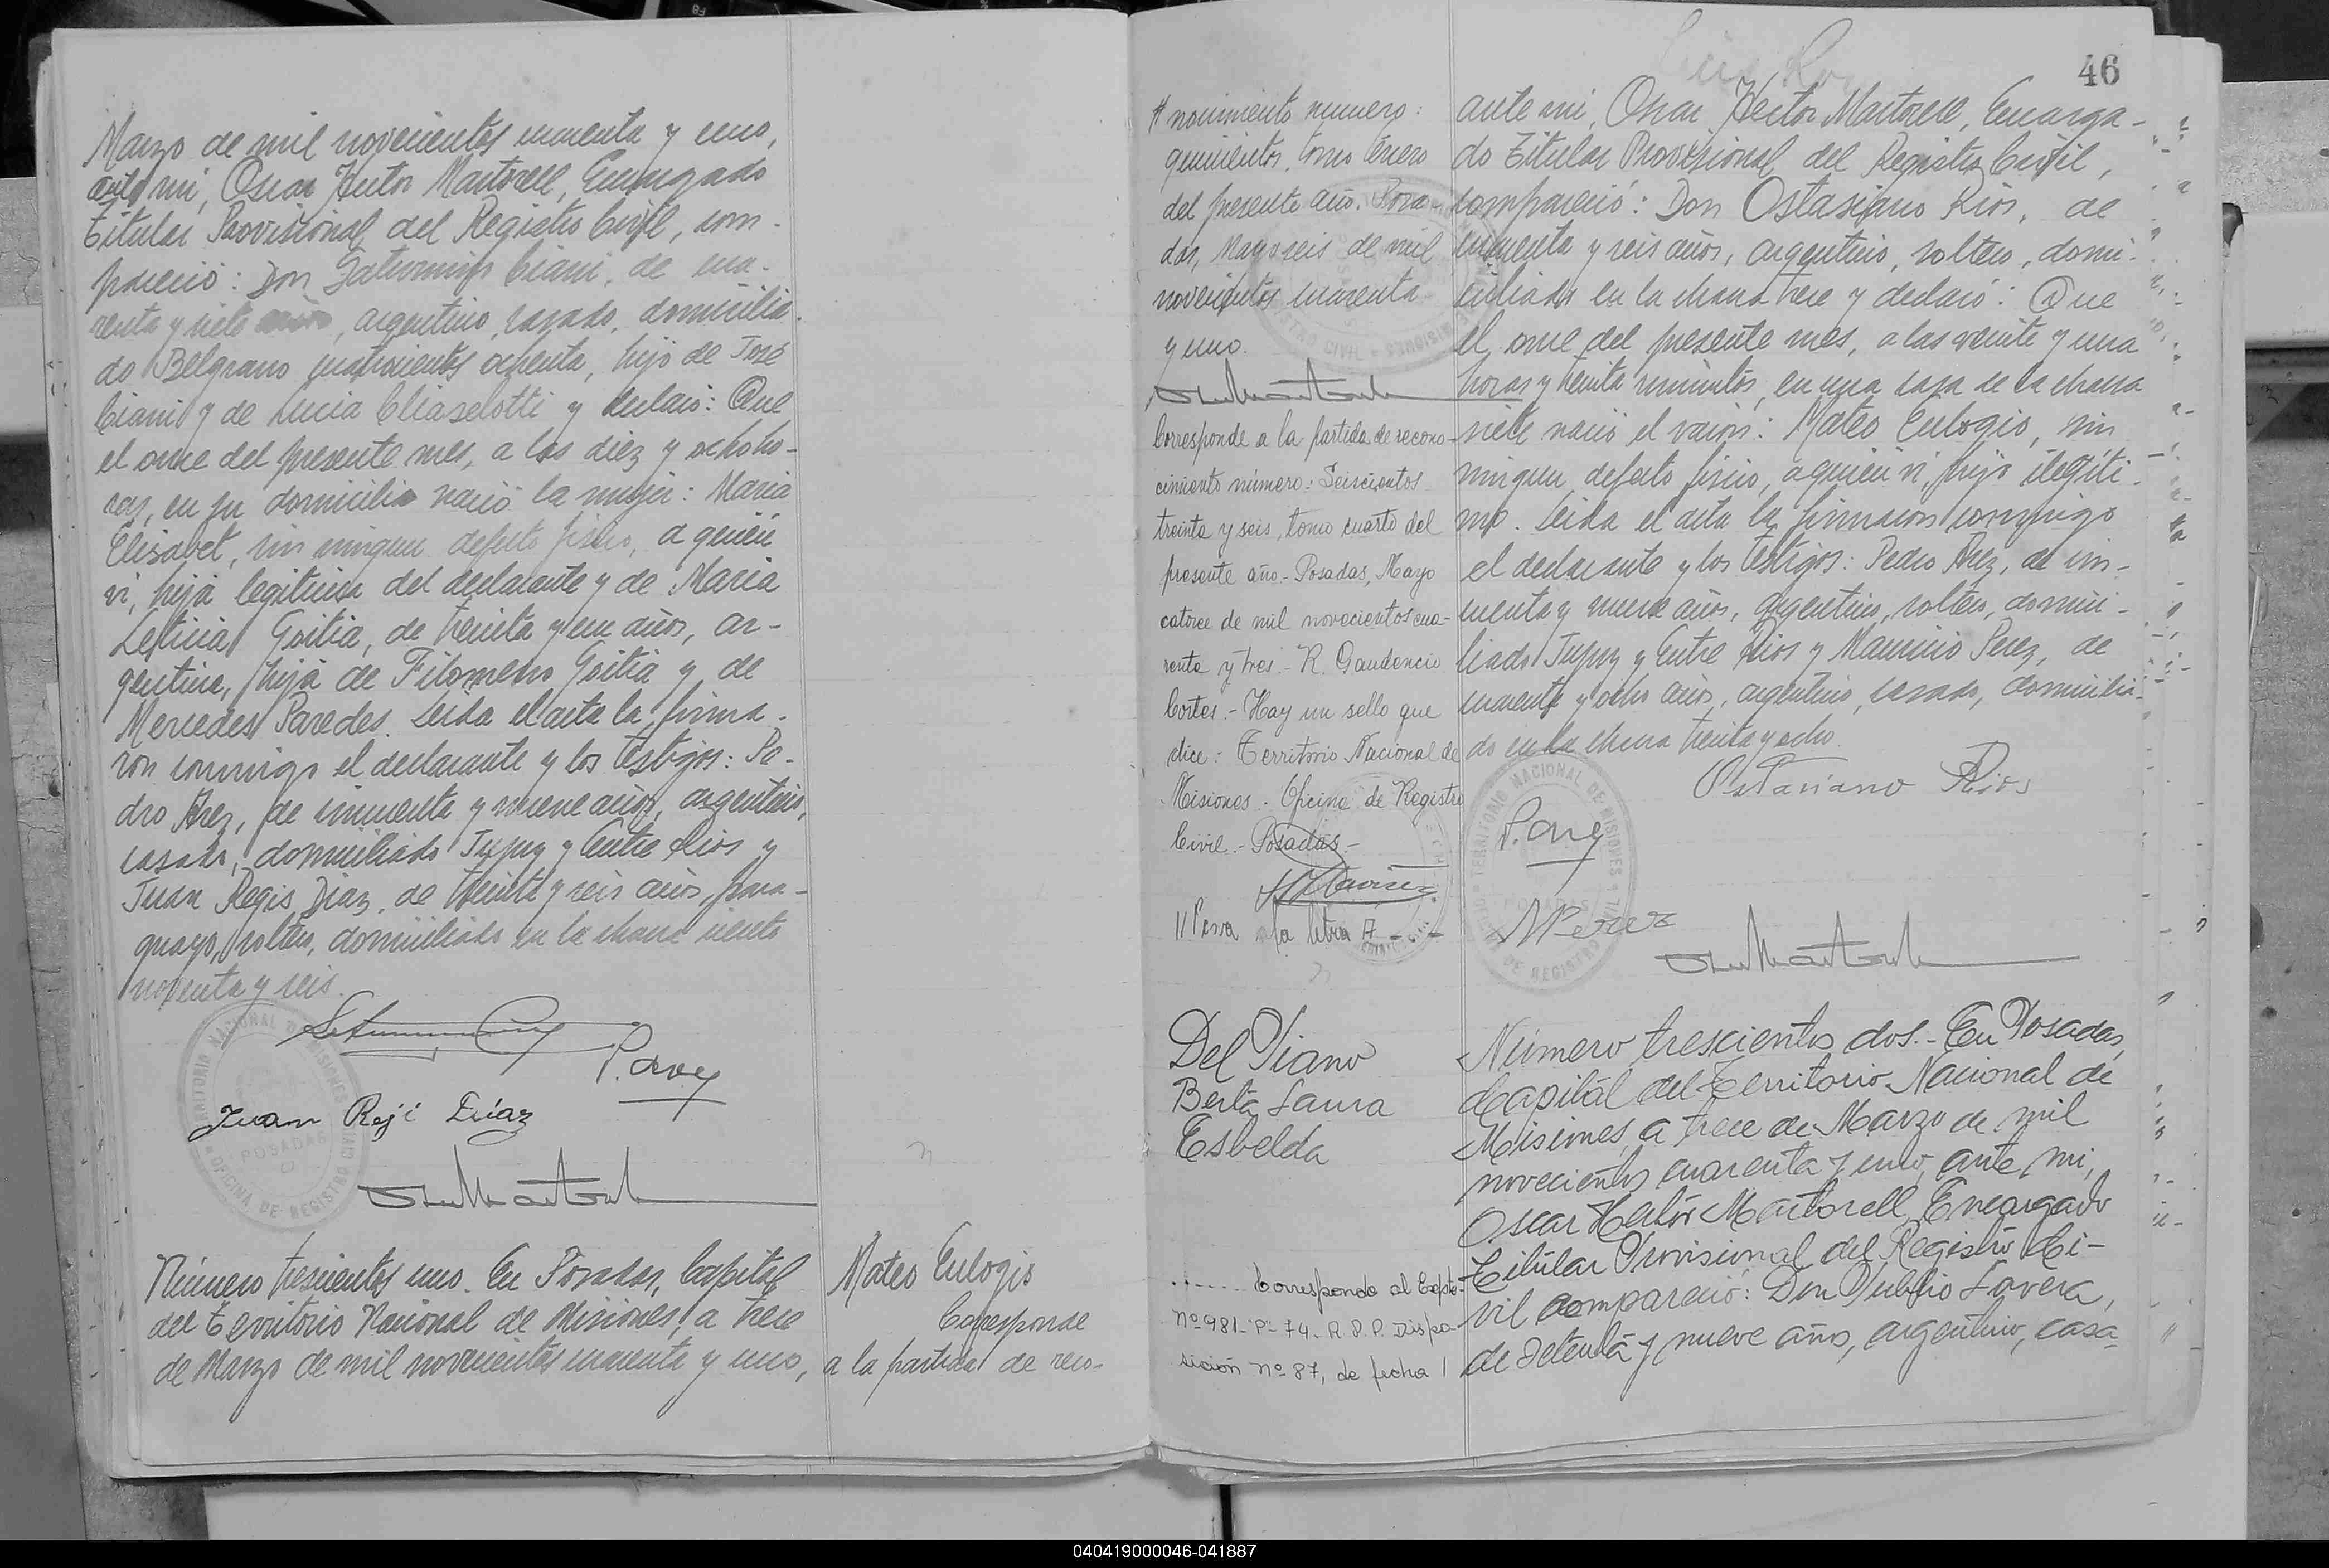 Marzo de mil novecientos cuarenta y uno,
ante mi, Oscar Hector Martorell, Encargado
Titular Provisional del Registro Civil, com-
pareció: Don Saturnino Ciani, de cua-
renta y siete años, argentino, casado, domicilia-
do Belgrano cuatrocientos ochenta, hijo de José
Ciani y de Lucia Cliaselotti y declaró: Que
el once del presente mes, a las diez y ocho ho-
ras, en su domicilio nació la mujer: Maria
Elisabet, sin ningun defecto fisico, a quien
vi, hija legitima del declarante y de Maria
Leticia Goitia, de treinta y un años, ar-
gentina, hija de Filomeno Goitia y de
Mercedes Paredes. Leida el acta la firma-
ron conmigo el declarante y los testigos: Pe-
dro Arez, de cincuenta y nueve años, argentino,
casado, domiciliado Jujuy y Entre Rios y
Juan Regis Diaz, de treinta y seis años, para-
guayo, soltero, domiciliado en la chacra ciento
noventa y seis.
P. Arez
Juan Reji Diaz
TERRITORIO NACIONAL DE MISIONES
OFICINA DE REGISTRO CIVIL
POSADAS
Número trescientos uno. En Posadas, Capital
del Territorio Nacional de Misiones, a trece
de Marzo de mil novecientos cuarenta y uno,
Mateo Eulogio
Corresponde
a la partida de reco-
46
nocimiento numero:
quinientos, tomo tercero
del presente año. Posa-
das, Mayo seis de mil
novecientos cuarenta
y uno.
Corresponde a la partida de recono-
cimiento número: Seiscientos
treinta y seis, tomo cuarto del
presente año.- Posadas, Mayo
catorce de mil novecientos cua-
renta y tres.- R. Gaudencio
Cortes.- Hay un sello que
dice: Territorio Nacional de
Misiones.- Oficina de Registro
Civil.- Posadas.-
// Pasa a la letra A - . -
ante mi, Oscar Hector Martorell, Encarga-
do Titular Provisional del Registro Civil,
compareció: Don Ostasiano Rios, de
cuarenta y seis años, argentino, soltero, domi-
ciliado en la chacra trece y declaró: Que
el once del presente mes, a las veinte y una
horas y treinta minutos, en una casa de la chacra
siete nació el varón: Mateo Eulogio, sin
ningun defecto fisico, a quien vi, hijo ilegiti-
mo. Leida el acta la firmaron conmigo
el declarante y los testigos: Pedro Arez, de cin-
cuenta y nueve años, argentino, soltero, domici-
liado Jujuy y Entre Rios y Mauricio Perez, de
cuarenta y ocho años, argentino, casado, domicilia-
do en la chacra treinta y ocho.
Ostaciano Rios
P. Arez
M Perez
TERRITORIO NACIONAL DE MISIONES
OFICINA DE REGISTRO CIVIL
POSADAS
Del Piano
Berta Laura
Esbelda
Corresponde al Expte.
Nº 981-P-74- R.P.P. Dispo-
sición nº 87, de fecha
Número trescientos dos.- En Posadas,
Capital del Territorio Nacional de
Misiones, a trece de Marzo de mil
novecientos cuarenta y uno, ante mi,
Oscar Hector Martorell, Encargado
Titular Provisional del Registro Ci-
vil compareció: Don Publio Lavera,
de setenta y nueve año, argentino, casa-
040419000046-041887